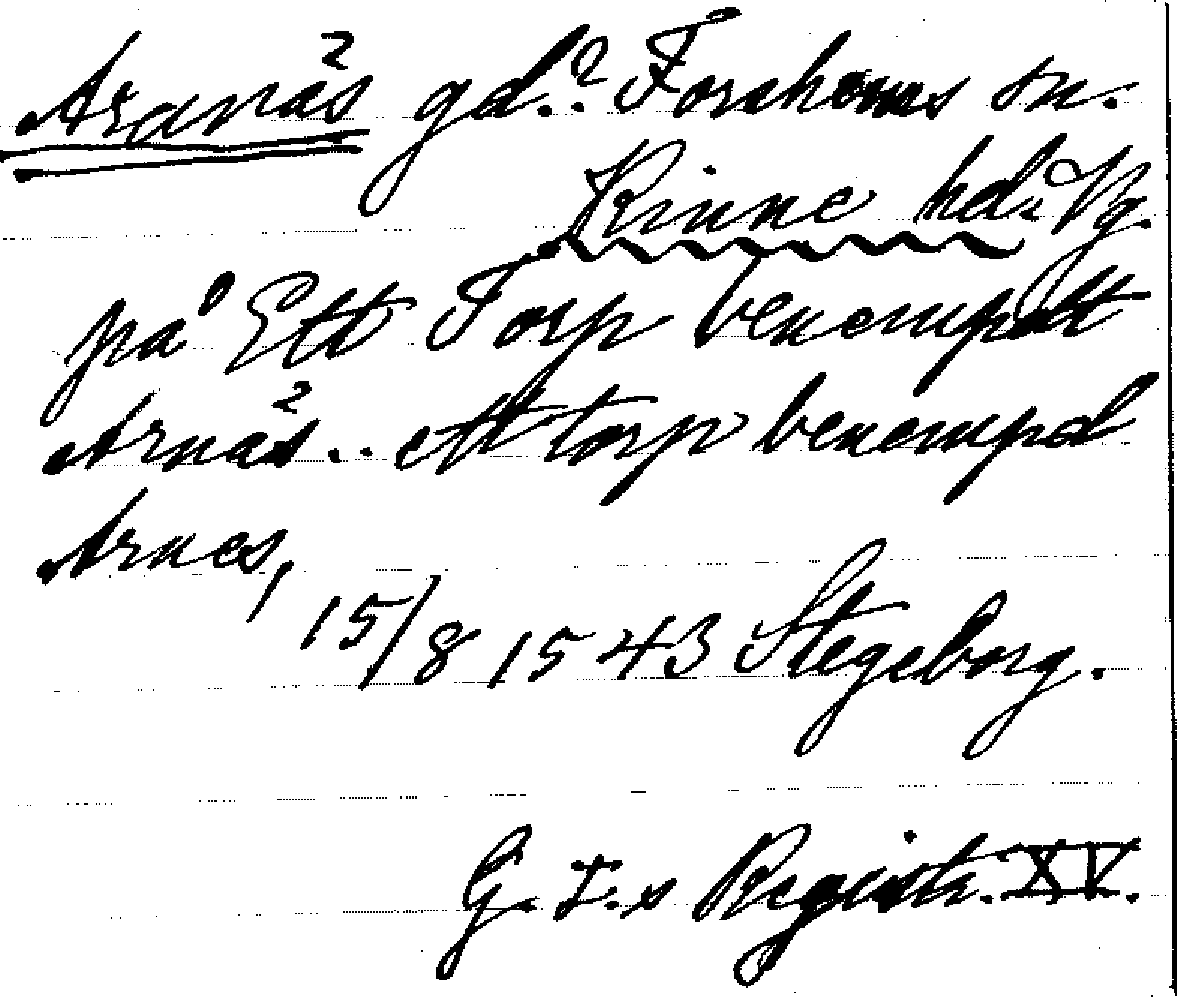 Aranäs gd.? Forshems sn.
Kinne hd. Vg.
på Ett Torp benempdtt
Arnäs.. ett torp benempd
Arnes,
15/8 1543 Stegeborg.
G. I.s Registr. XV.